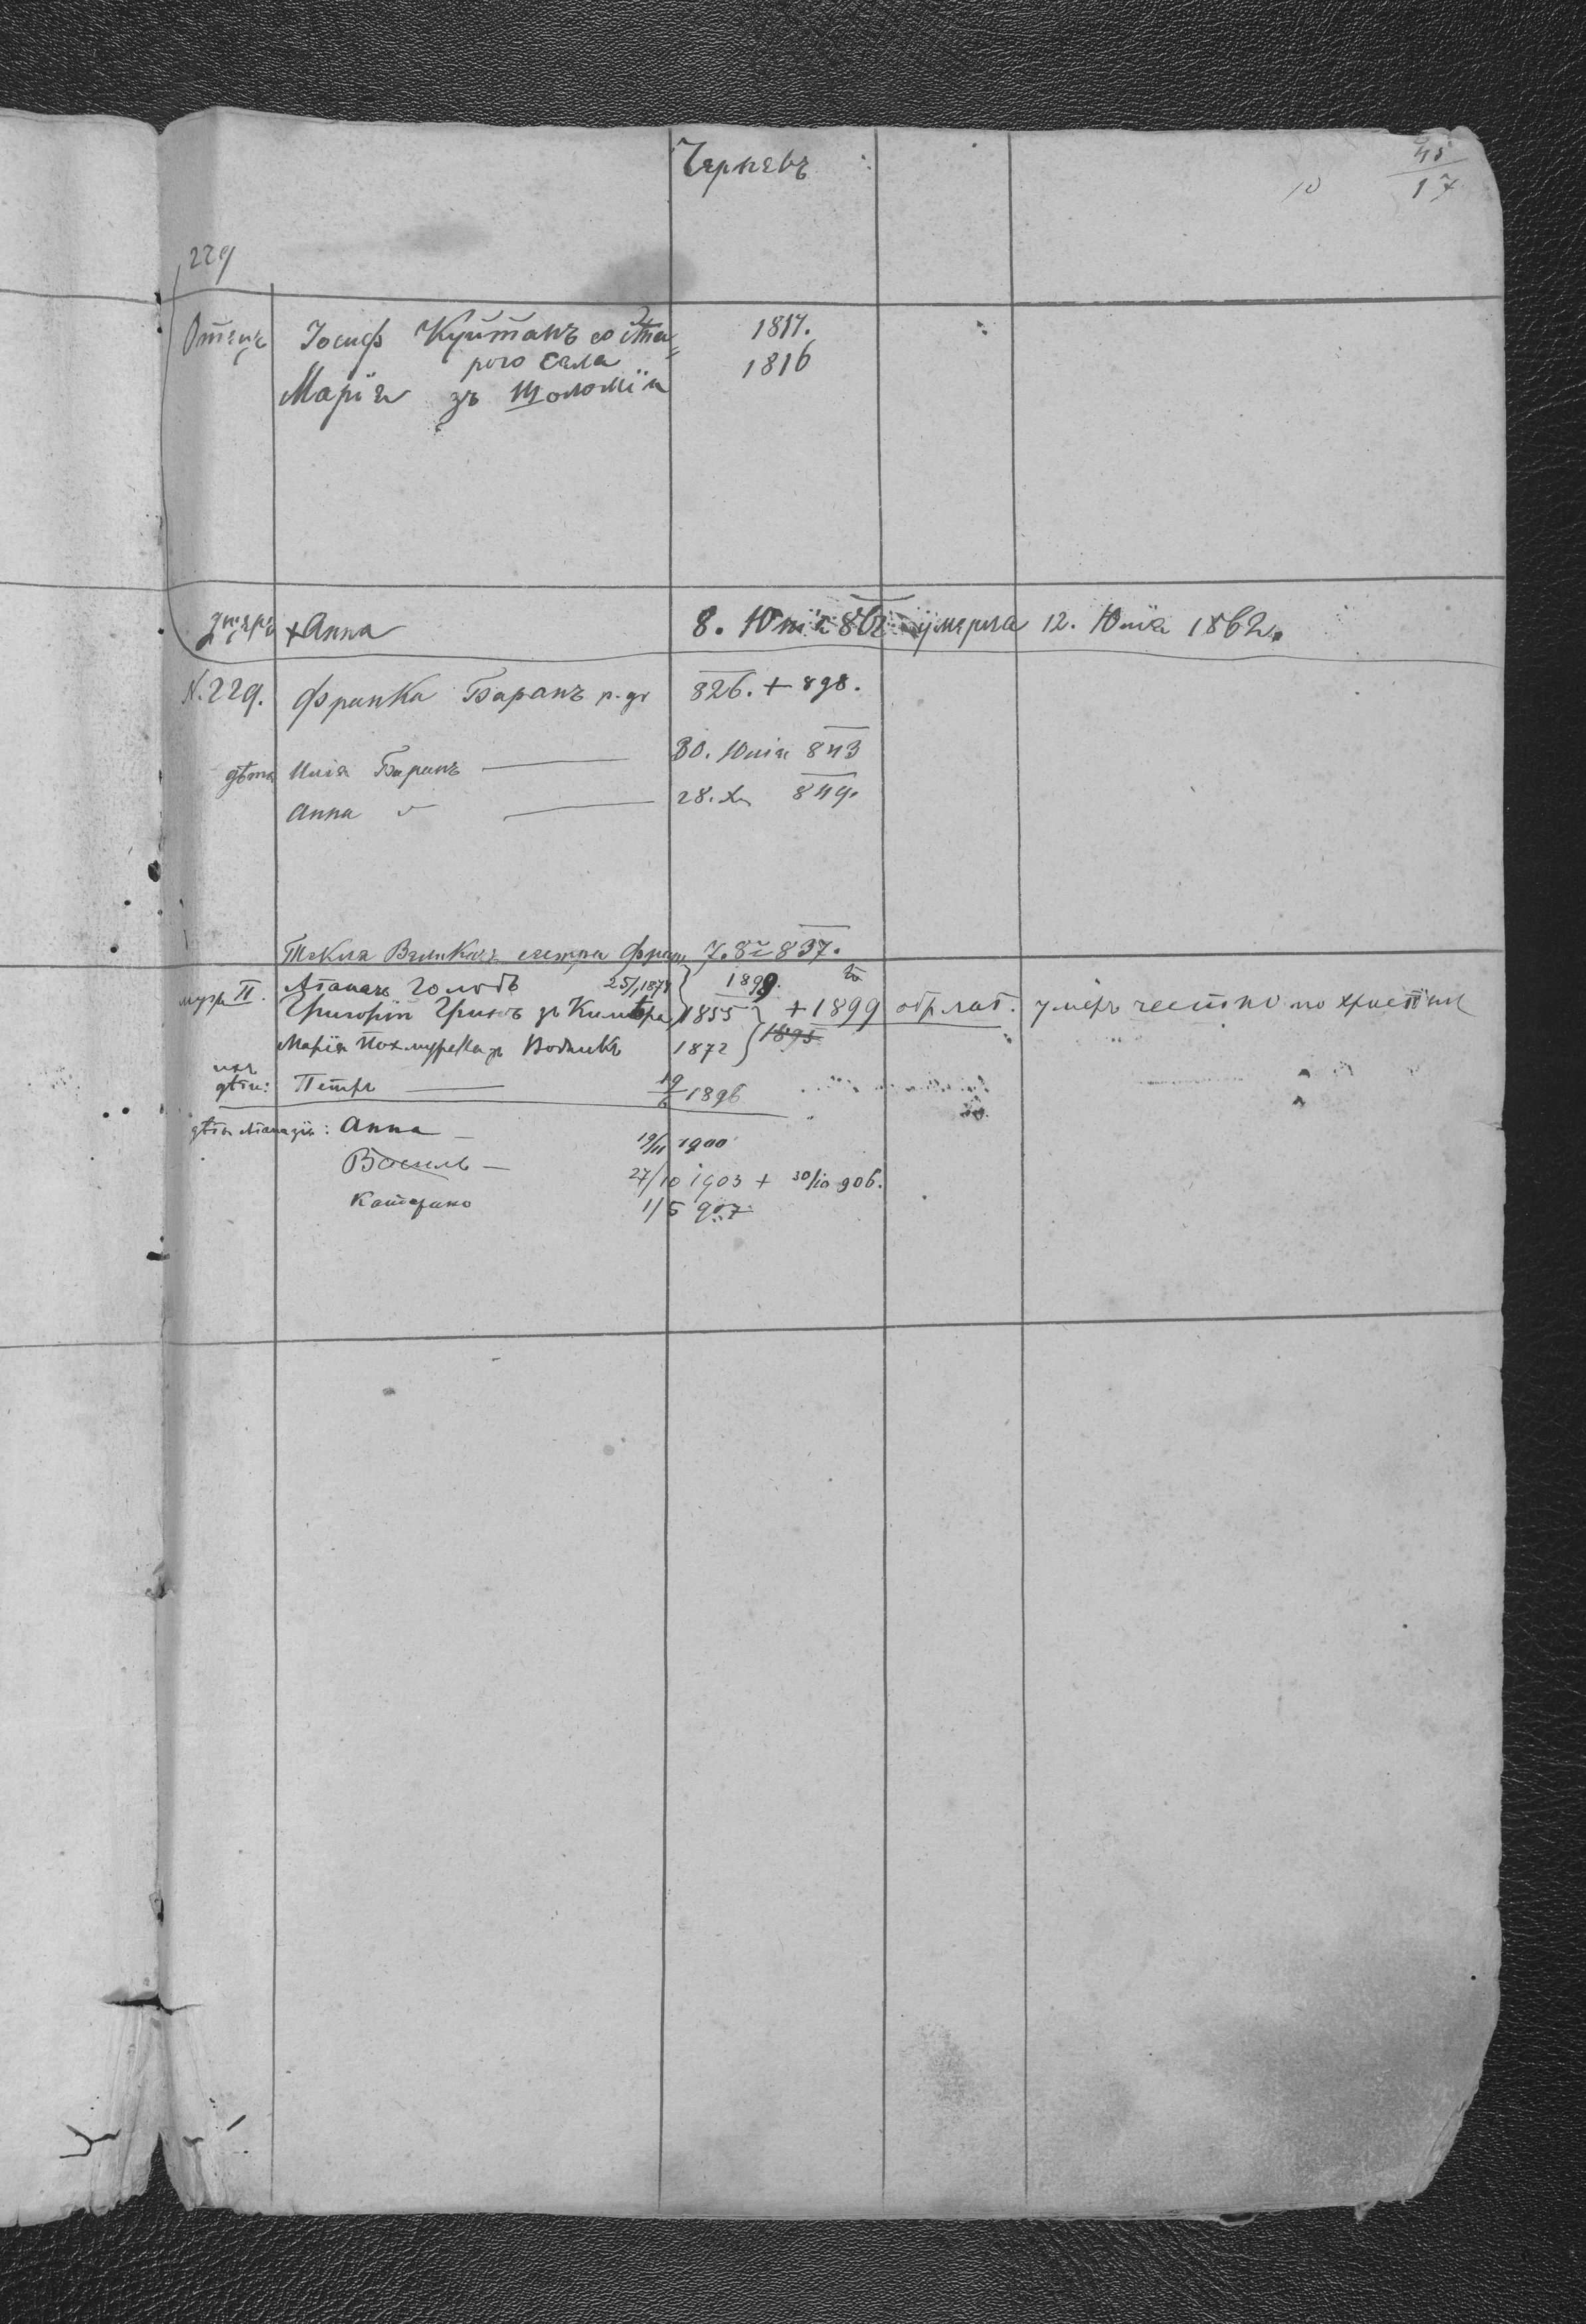 Черневъ
10
45
17
229
Отецъ Іосифъ Куйтанъ со Ста= 1817.
рого села
Марія зъ Шоломіи 1816
дщерь +Анна 8. Юнія 862 умерла 12. Юлія 1862.
N.229. Франка Баранъ р. гр 826. + 898.
дѣти Илія Баранъ — 30. Юлія 843
Анна — 28. 849.
Текла сестра Франк 7. 837.
мужъ II. Атаназъ Голобъ 25/1 1874 } 1899.
Григорій зъ 1855 } +1899 обр. лат. умеръ честно по
Марія зъ 1872 } 1895
ихъ
дѣти: Петръ — 19/6 1896
дѣти Атаназія: Анна — 19/11 1900
Василь — 27/10 1903 + 30/10 906.
Катарина 1/5 907